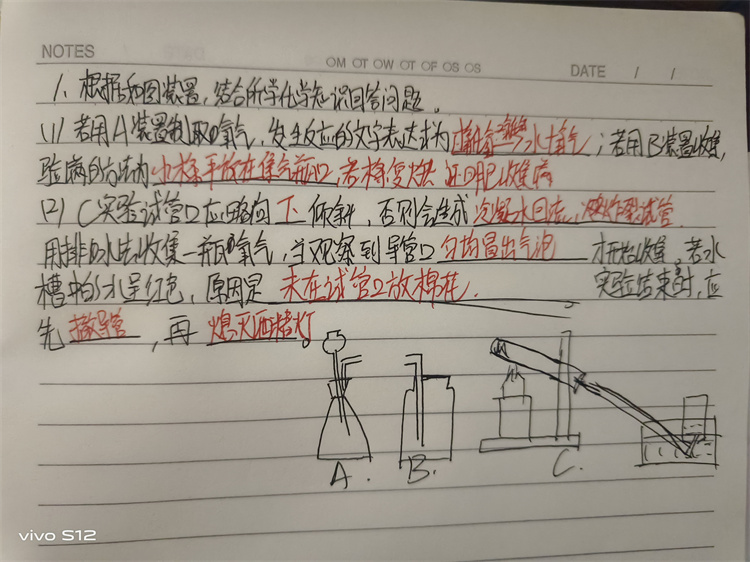 NOTES OM OT OW OT OF OS OS DATE / /
1. 根据如图装置,结合所学化学知识回答问题.
(1) 若用A装置制取氧气,发生反应的文字表达式为 水+氧气;若用B装置收集,
验满的方法为 小木条平放在集气瓶口 若木条复燃 证明已收集满
(2) C实验试管口应略向 下 倾斜,否则会造成 冷凝水回流,炸裂试管
用排水法收集一瓶氧气,当观察到导管口 匀均冒出气泡 才开始收集,若水
槽中的水呈红色,原因是 未在试管口放棉花. 实验结束时,应
先 撤导管 ,再 熄灭酒精灯
A. B. C.
vivo S12